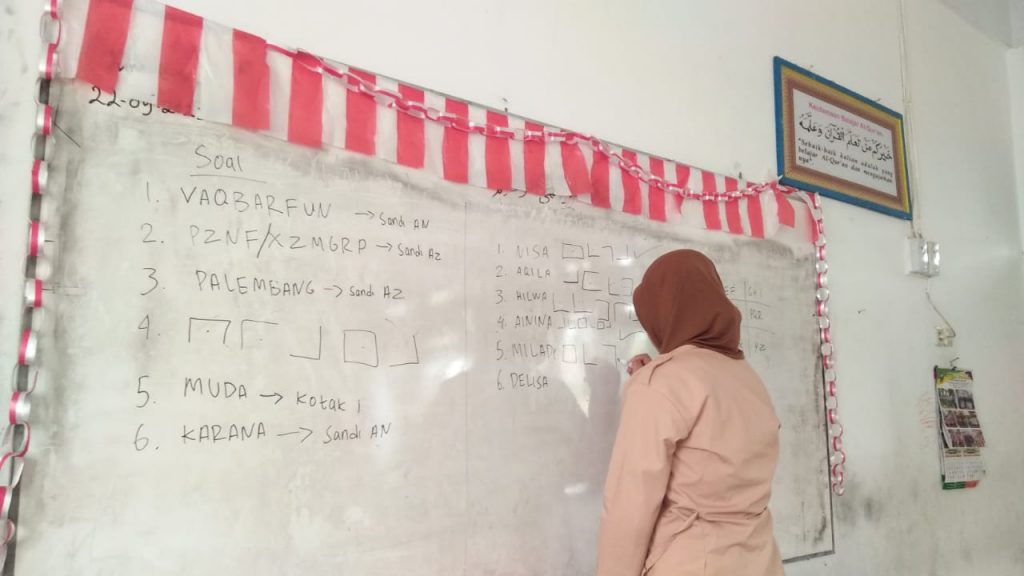 22-09-
Soal
1. VAQBARFUN → Sandi AN
2. PZNF/XZMGRP → Sandi AZ
3. PALEMBANG → Sandi AZ
4.
5. MUDA → Kotak 1
6. KARANA → Sandi AN
1. NISA
2. AQILA
3. HILWA
4. AININA
5. MILADI
6. DELISA
Keutamaan Belajar Al-Qur'an
خَيْرُكُمْ مَنْ تَعَلَّمَ الْقُرْآنَ وَعَلَّمَهُ
"Sebaik-baik kalian adalah yang
belajar Al-Qur'an dan mengajarkan
nya"